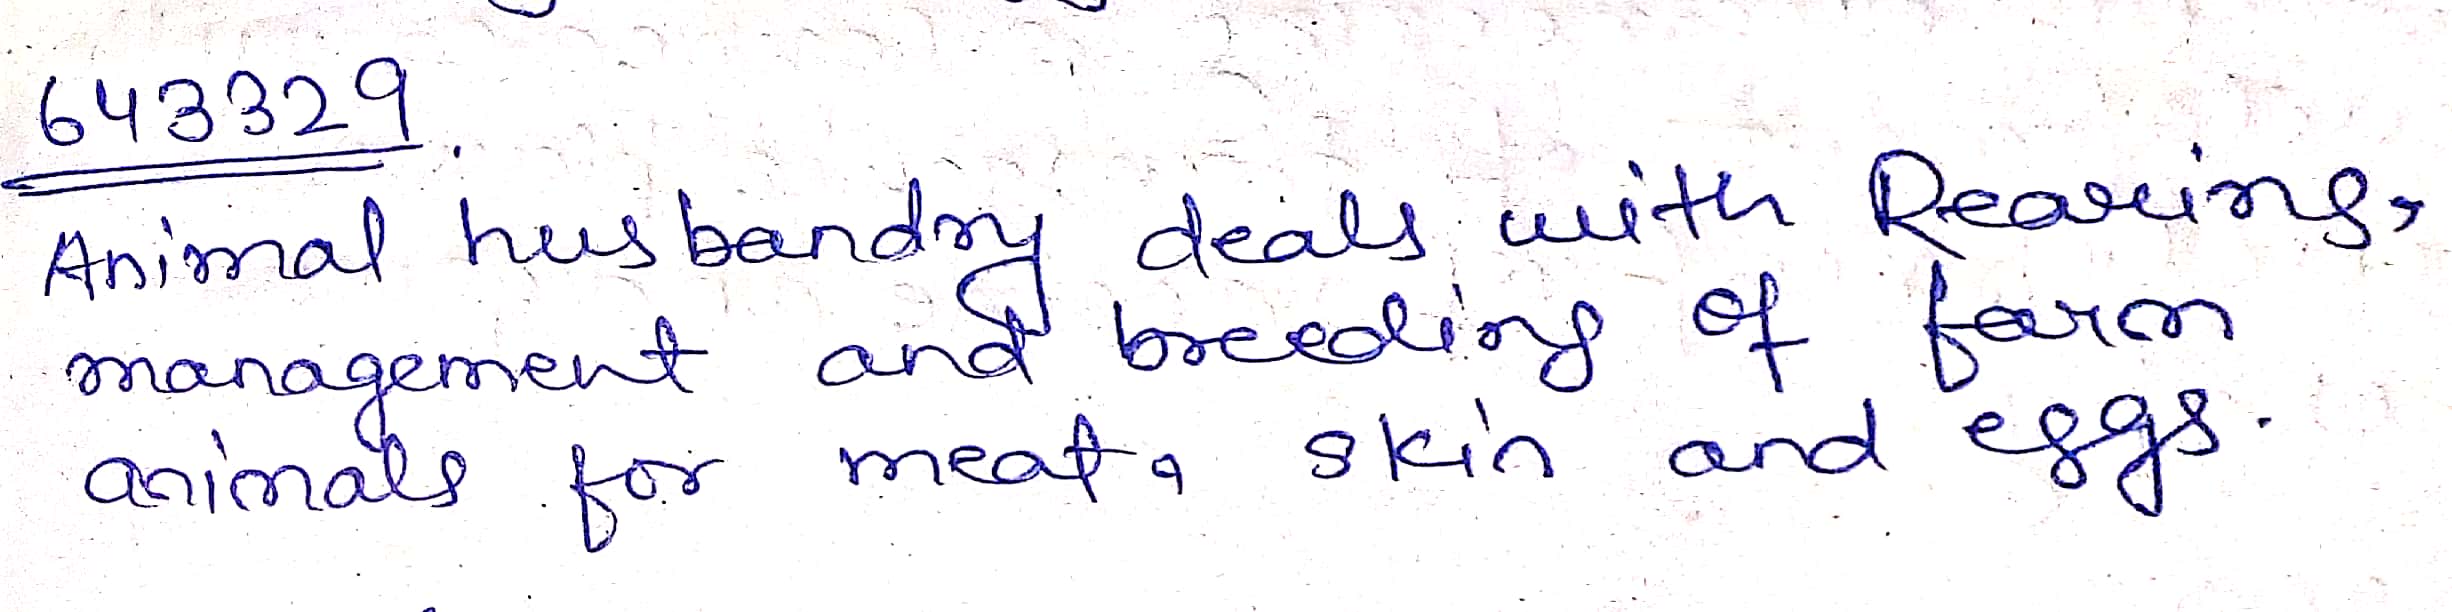 643329.
Animal husbandry deals with Rearing,
management and breeding of farm
animals for meat, skin and eggs.